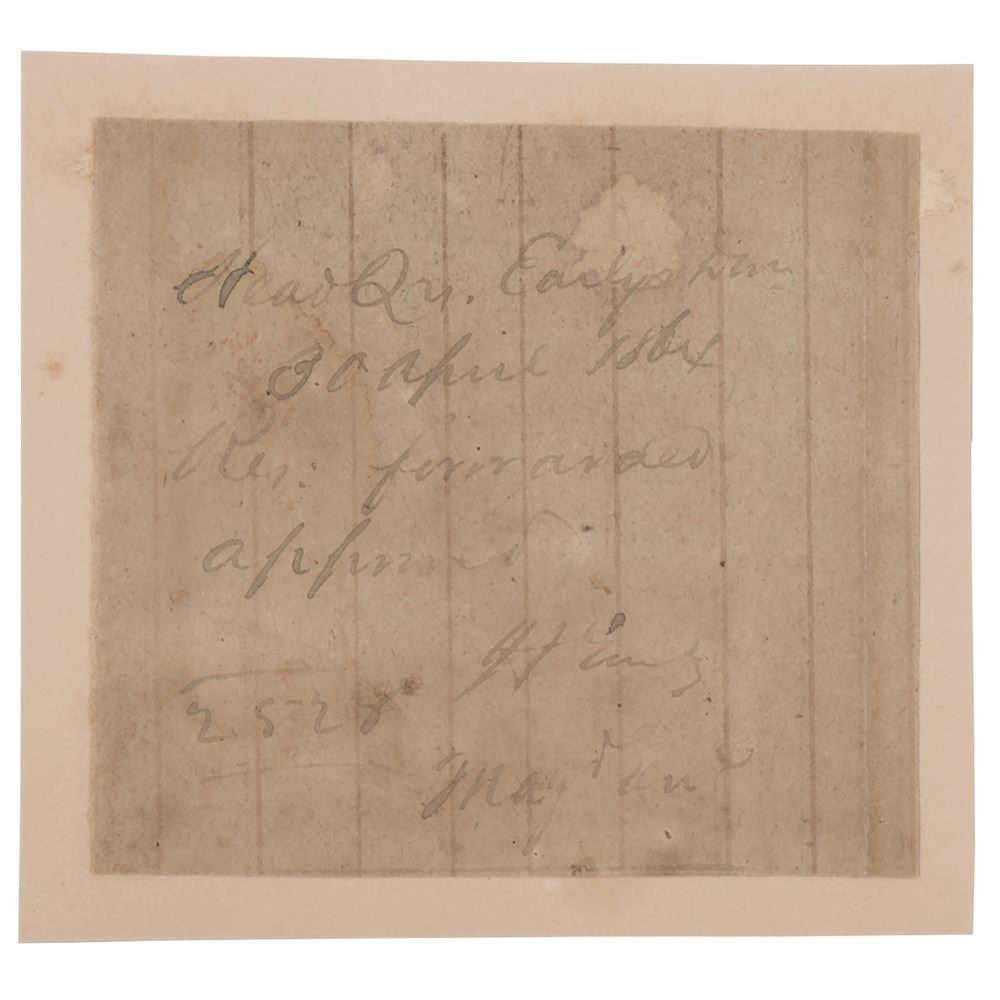 Head Qrs. Earlys Divn
30 April 1864
Res: forwarded
approved
J A Early
2528
Maj Genl